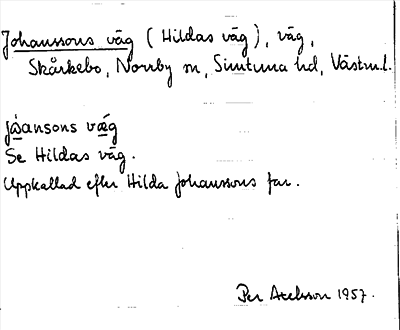 Johanssons väg (Hildas väg), väg,
Skårkebo, Norrby sn, Simtuna hd, Västm.l.
jò̱ansons vǽ̱g
Se Hildas väg.
Uppkallad efter Hilda Johanssons far.
Per Axelsson 1957.